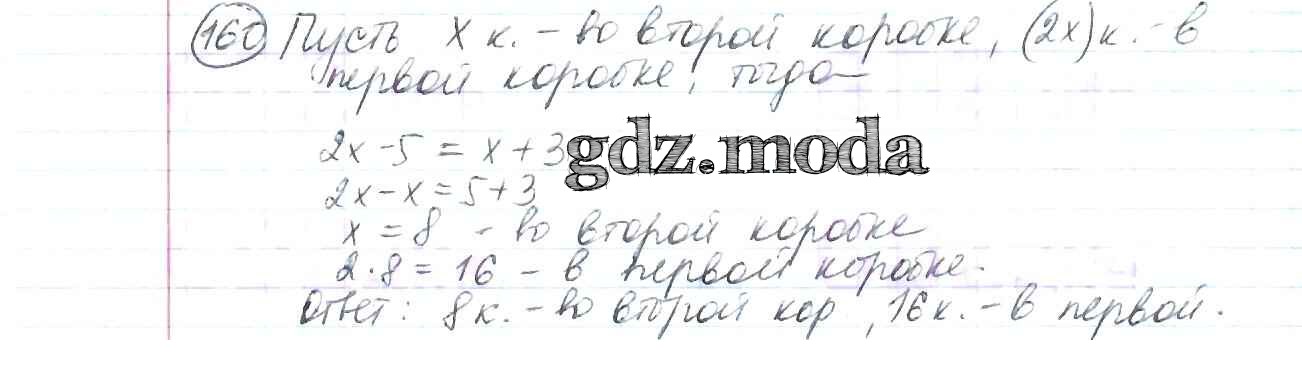 160 Пусть x к. - во второй коробке, (2x) к. - в
первой коробке, тогда
2x - 5 = x + 3
gdz.moda
2x - x = 5 + 3
x = 8 - во второй коробке
2 · 8 = 16 - в первой коробке.
Ответ: 8 к. - во второй кор , 16 к. - в первой.